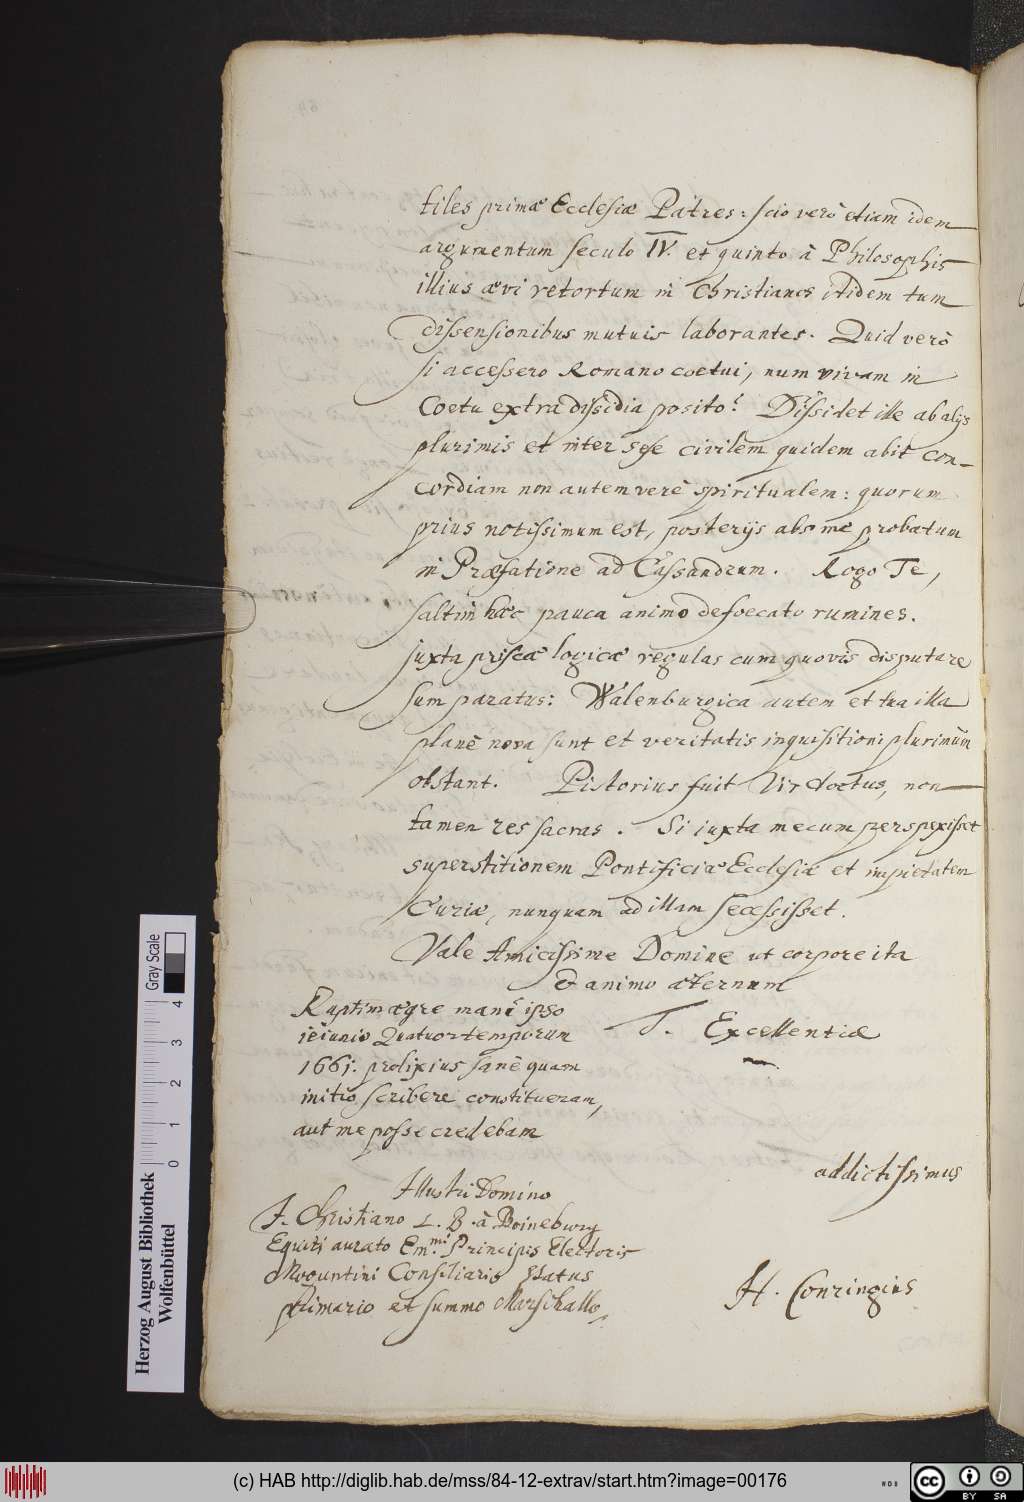 tiles primæ Ecclesiæ Patres: scio verò etiam idem
argumentum seculo IV. et quinto à Philosophis
illius ævi retortum in Christianos itidem tum
dissensionibus mutuis laborantes. Quid verò
si accessero Romano coetui, num vivam in
Coetu extra dissidia posito? Dissidet ille ab alijs
plurimis et inter sese civilem quidem abit con-
cordiam non autem verè spiritualem: quorum
prius notissimum est, posterijs abs me probatum
in Præfatione ad Cassandrum. Rogo Te,
saltim hæc pauca animo defoecato rumines.
juxta priscæ logicæ regulas cum quovis disputare
sum paratus: Walenburgica autem et tua illa
planè nova sunt et veritatis inquisitioni plurimùm
obstant. Pistorius fuit Vir doctus, non
tamen res sacras. Si iuxta mecum perspexisset
superstitionem Pontificiæ Ecclesiæ et impietatem
Curiæ, nunquam ad illam secessisset.
Vale Amicissime Domine ut corpore ita
& animo æternum
Raptim ægre manè ipso
ieiunio Quatuortemporum
1661. prolixius sanè quam
initio scribere constitueram,
aut me posse credebam
T. Excellentiæ
addictissimus
Illustri Domino
J. Christiano L. B. à Boineburg
Equiti aurato Em.mi Principis Electoris
Moguntini Consiliario status
primario et summo Marschallo.
H. Conringius
Herzog August Bibliothek
Wolfenbüttel
0 1 2 3 4
Gray Scale
(c) HAB http://diglib.hab.de/mss/84-12-extrav/start.htm?image=00176
WDB
CC BY SA